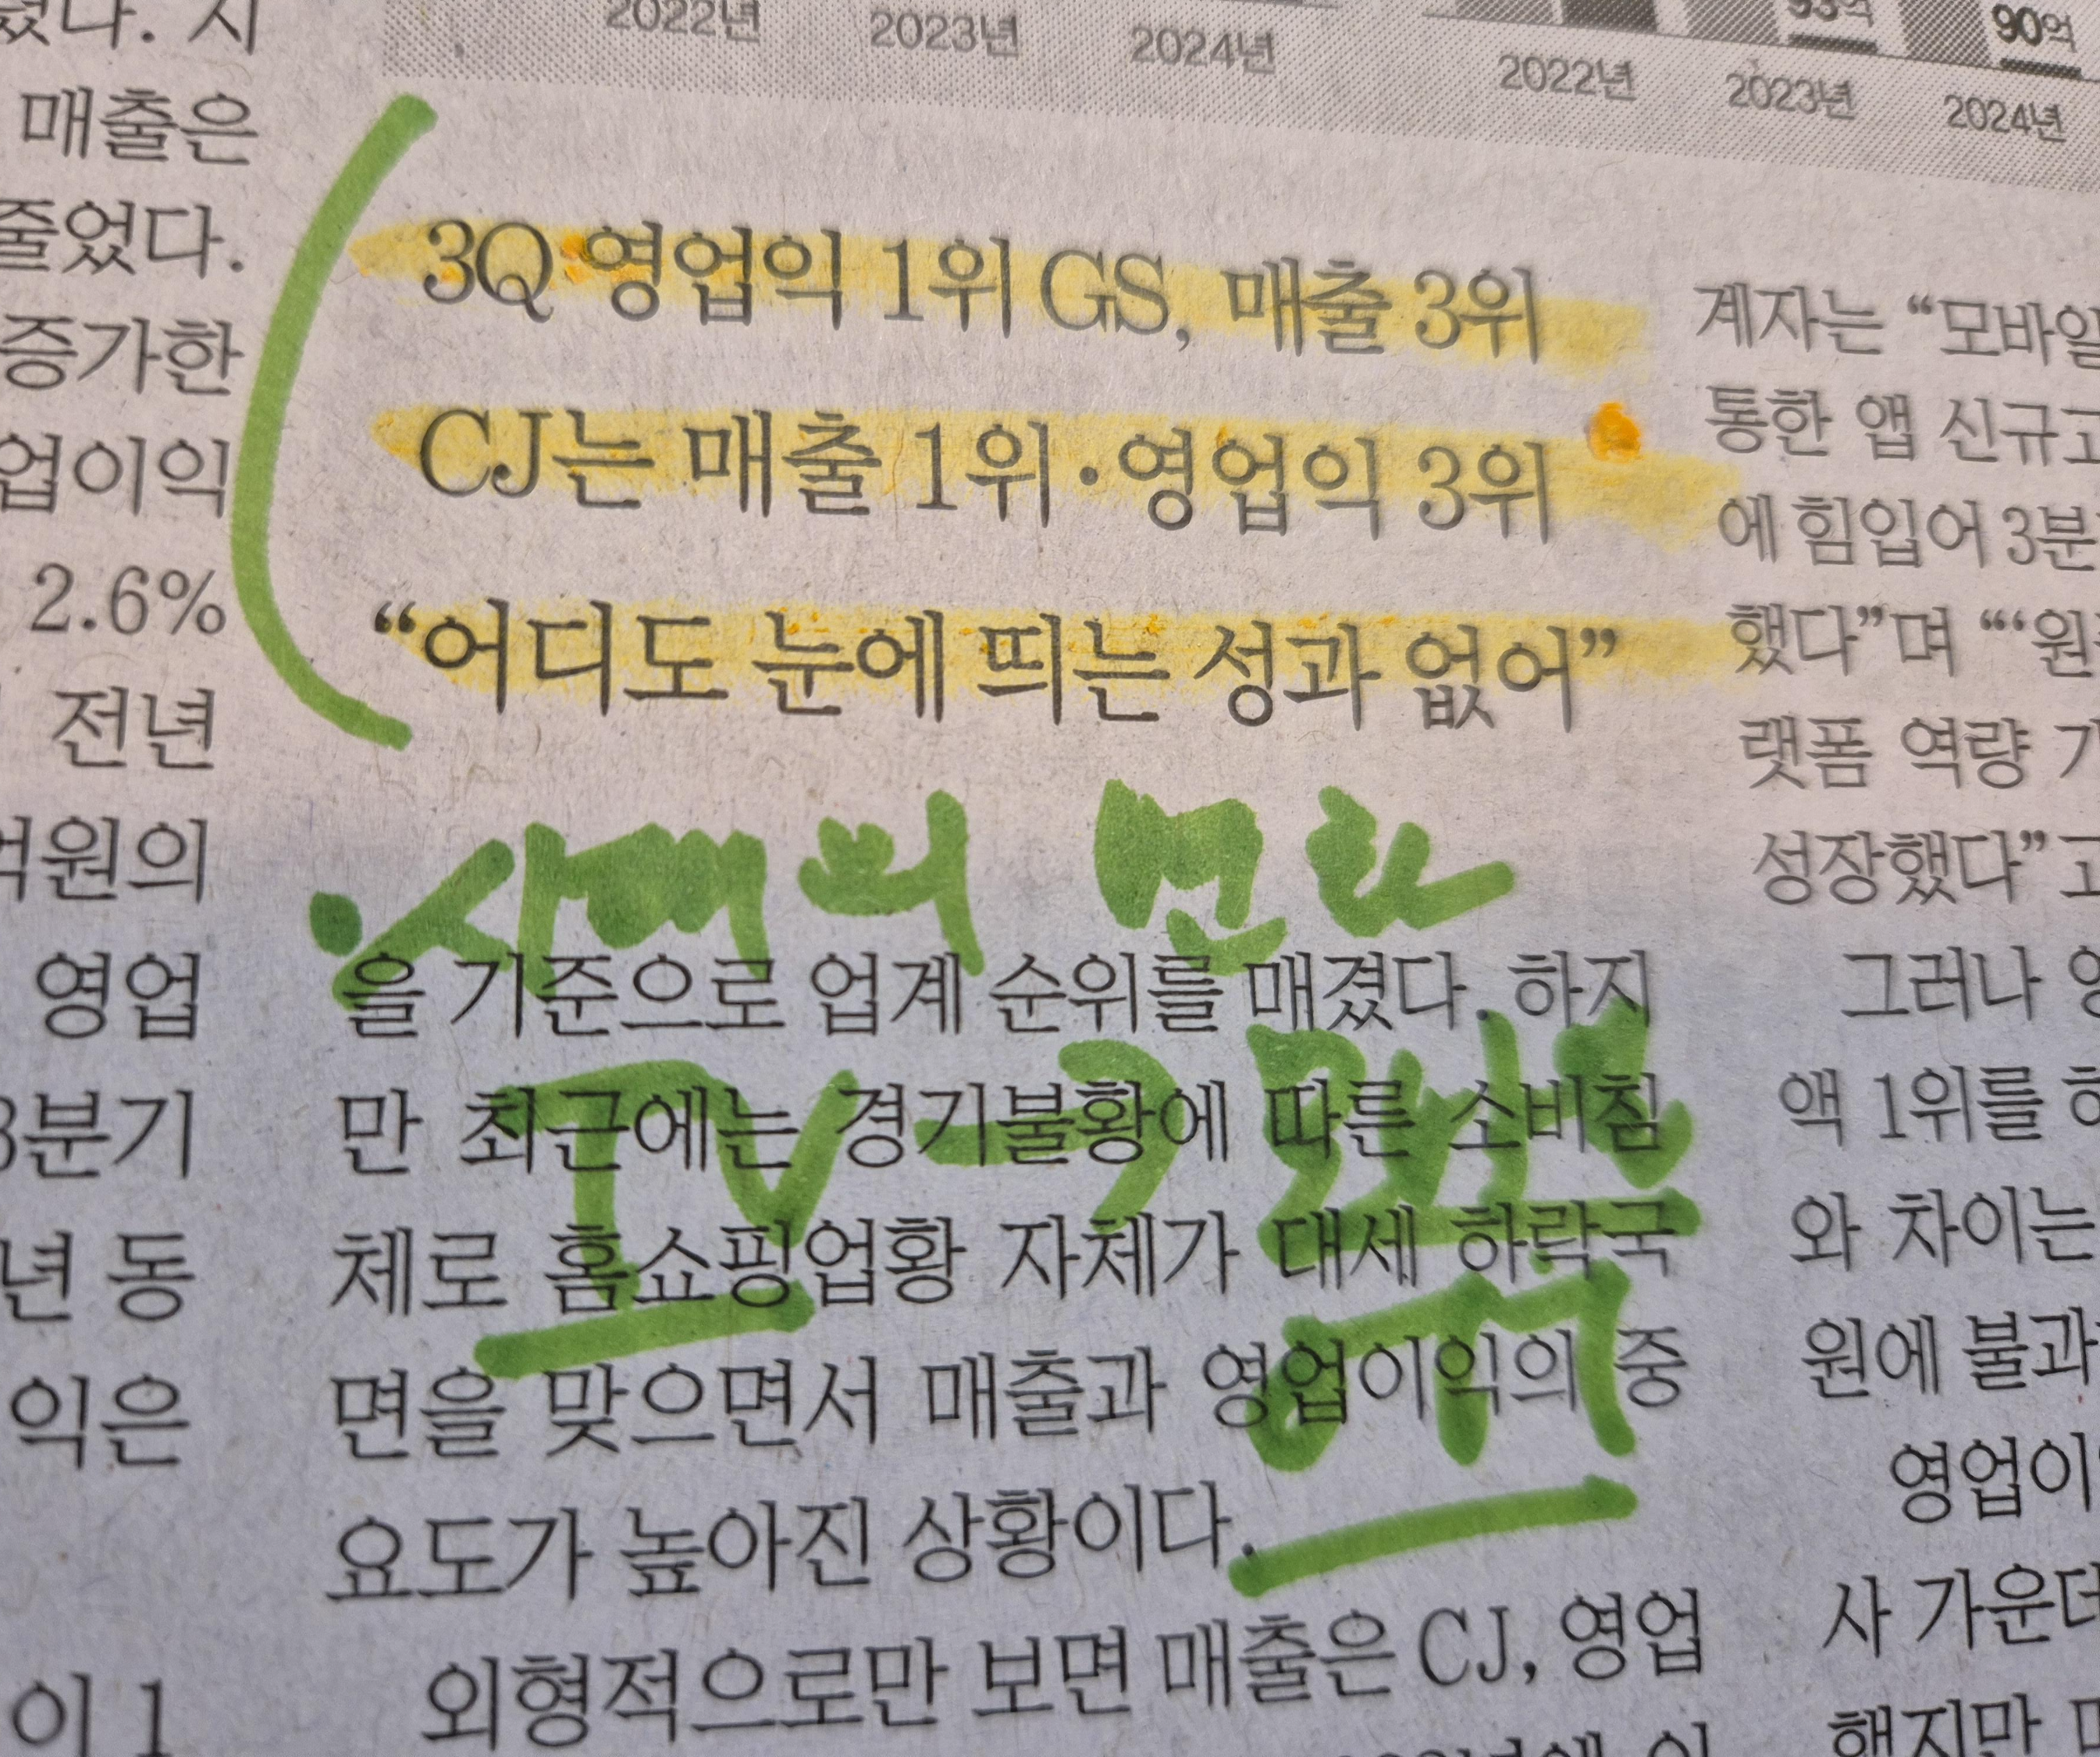 2022년 2023년 2024년
93억 90억
2022년 2023년 2024년
매출은
줄었다.
증가한
업이익
2.6%
전년
억원의
영업
3분기
년 동
익은
이 1
3Q 영업익 1위 GS, 매출 3위
CJ는 매출 1위·영업익 3위
“어디도 눈에 띄는 성과 없어”
시대의 변화
TV → 모바일
을 기준으로 업계 순위를 매겼다. 하지
만 최근에는 경기불황에 따른 소비침
체로 홈쇼핑업황 자체가 대세 하락국
면을 맞으면서 매출과 영업이익의 중
요도가 높아진 상황이다.
외형적으로만 보면 매출은 CJ, 영업
계자는 “모바일
통한 앱 신규고
에 힘입어 3분
했다”며 “‘원
랫폼 역량
성장했다”고
그러나
액 1위를
와 차이는
원에 불과
영업이
사 가운데
했지만